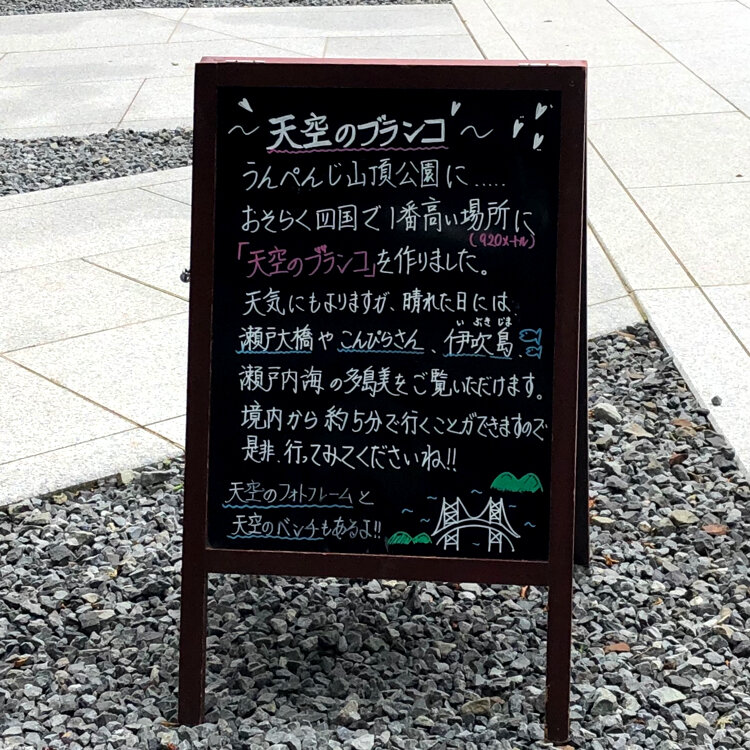 ～天空のブランコ～
うんぺんじ山頂公園に.....
おそらく四国で1番高い場所に、
(920メートル)
「天空のブランコ」を作りました。
天気にもよりますが、晴れた日には
瀬戸大橋やこんぴらさん、伊吹島、
いぶきじま
瀬戸内海の多島美をご覧いただけます。
境内から約5分で行くことができますので
是非、行ってみてくださいね!!
天空のフォトフレームと
天空のベンチもあるよ!!